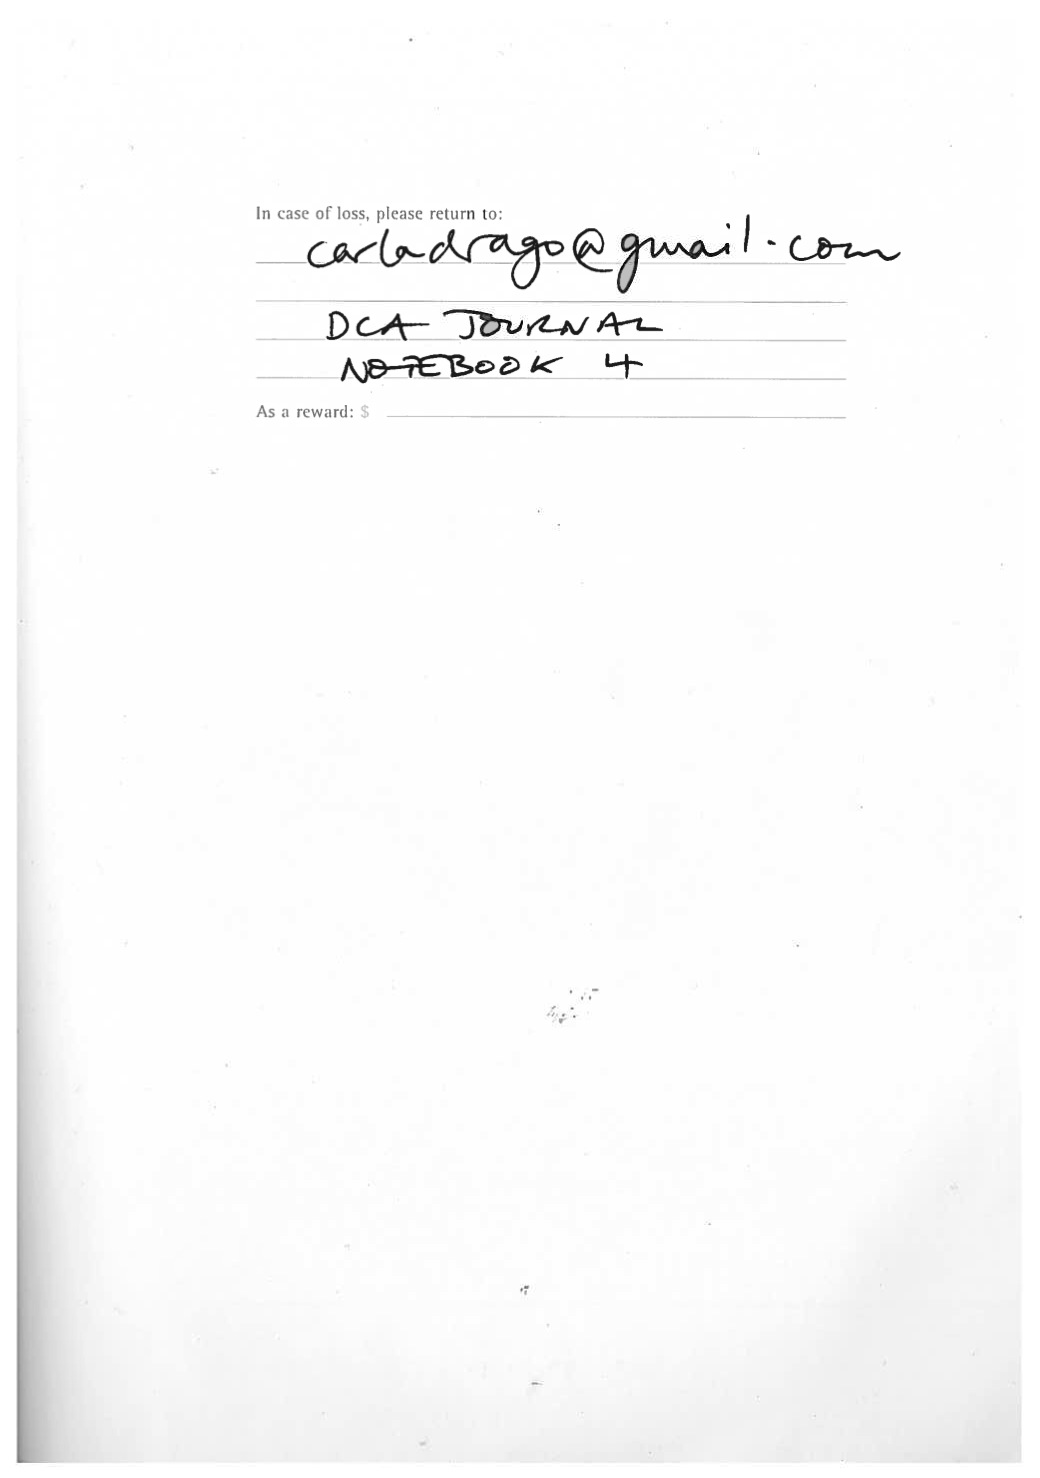 In case of loss, please return to:
carladrago@gmail.com
DCA JOURNAL
NOTEBOOK 4
As a reward: $